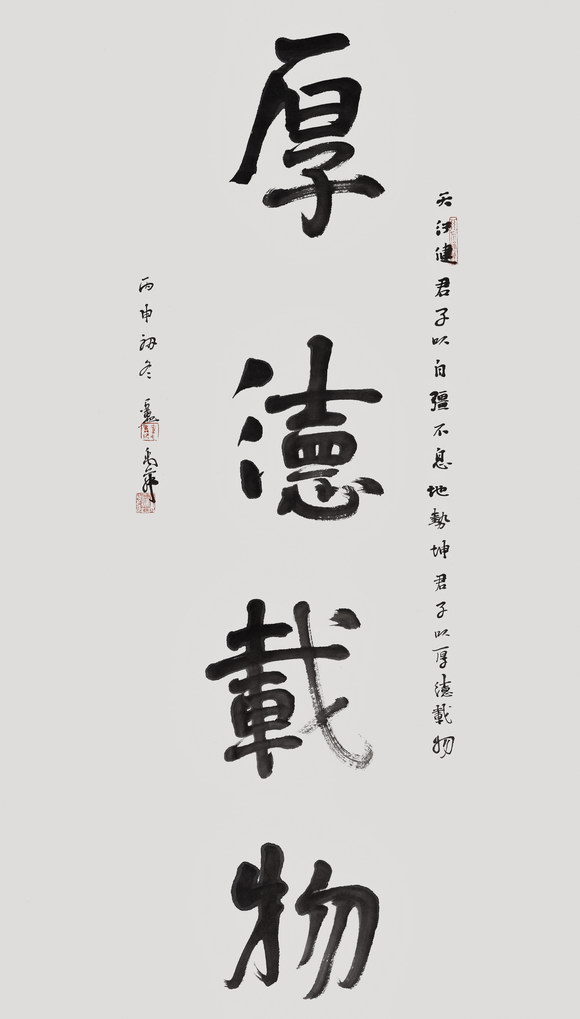 天行健君子以自彊不息地勢坤君子以厚德載物
厚德載物
丙申初冬